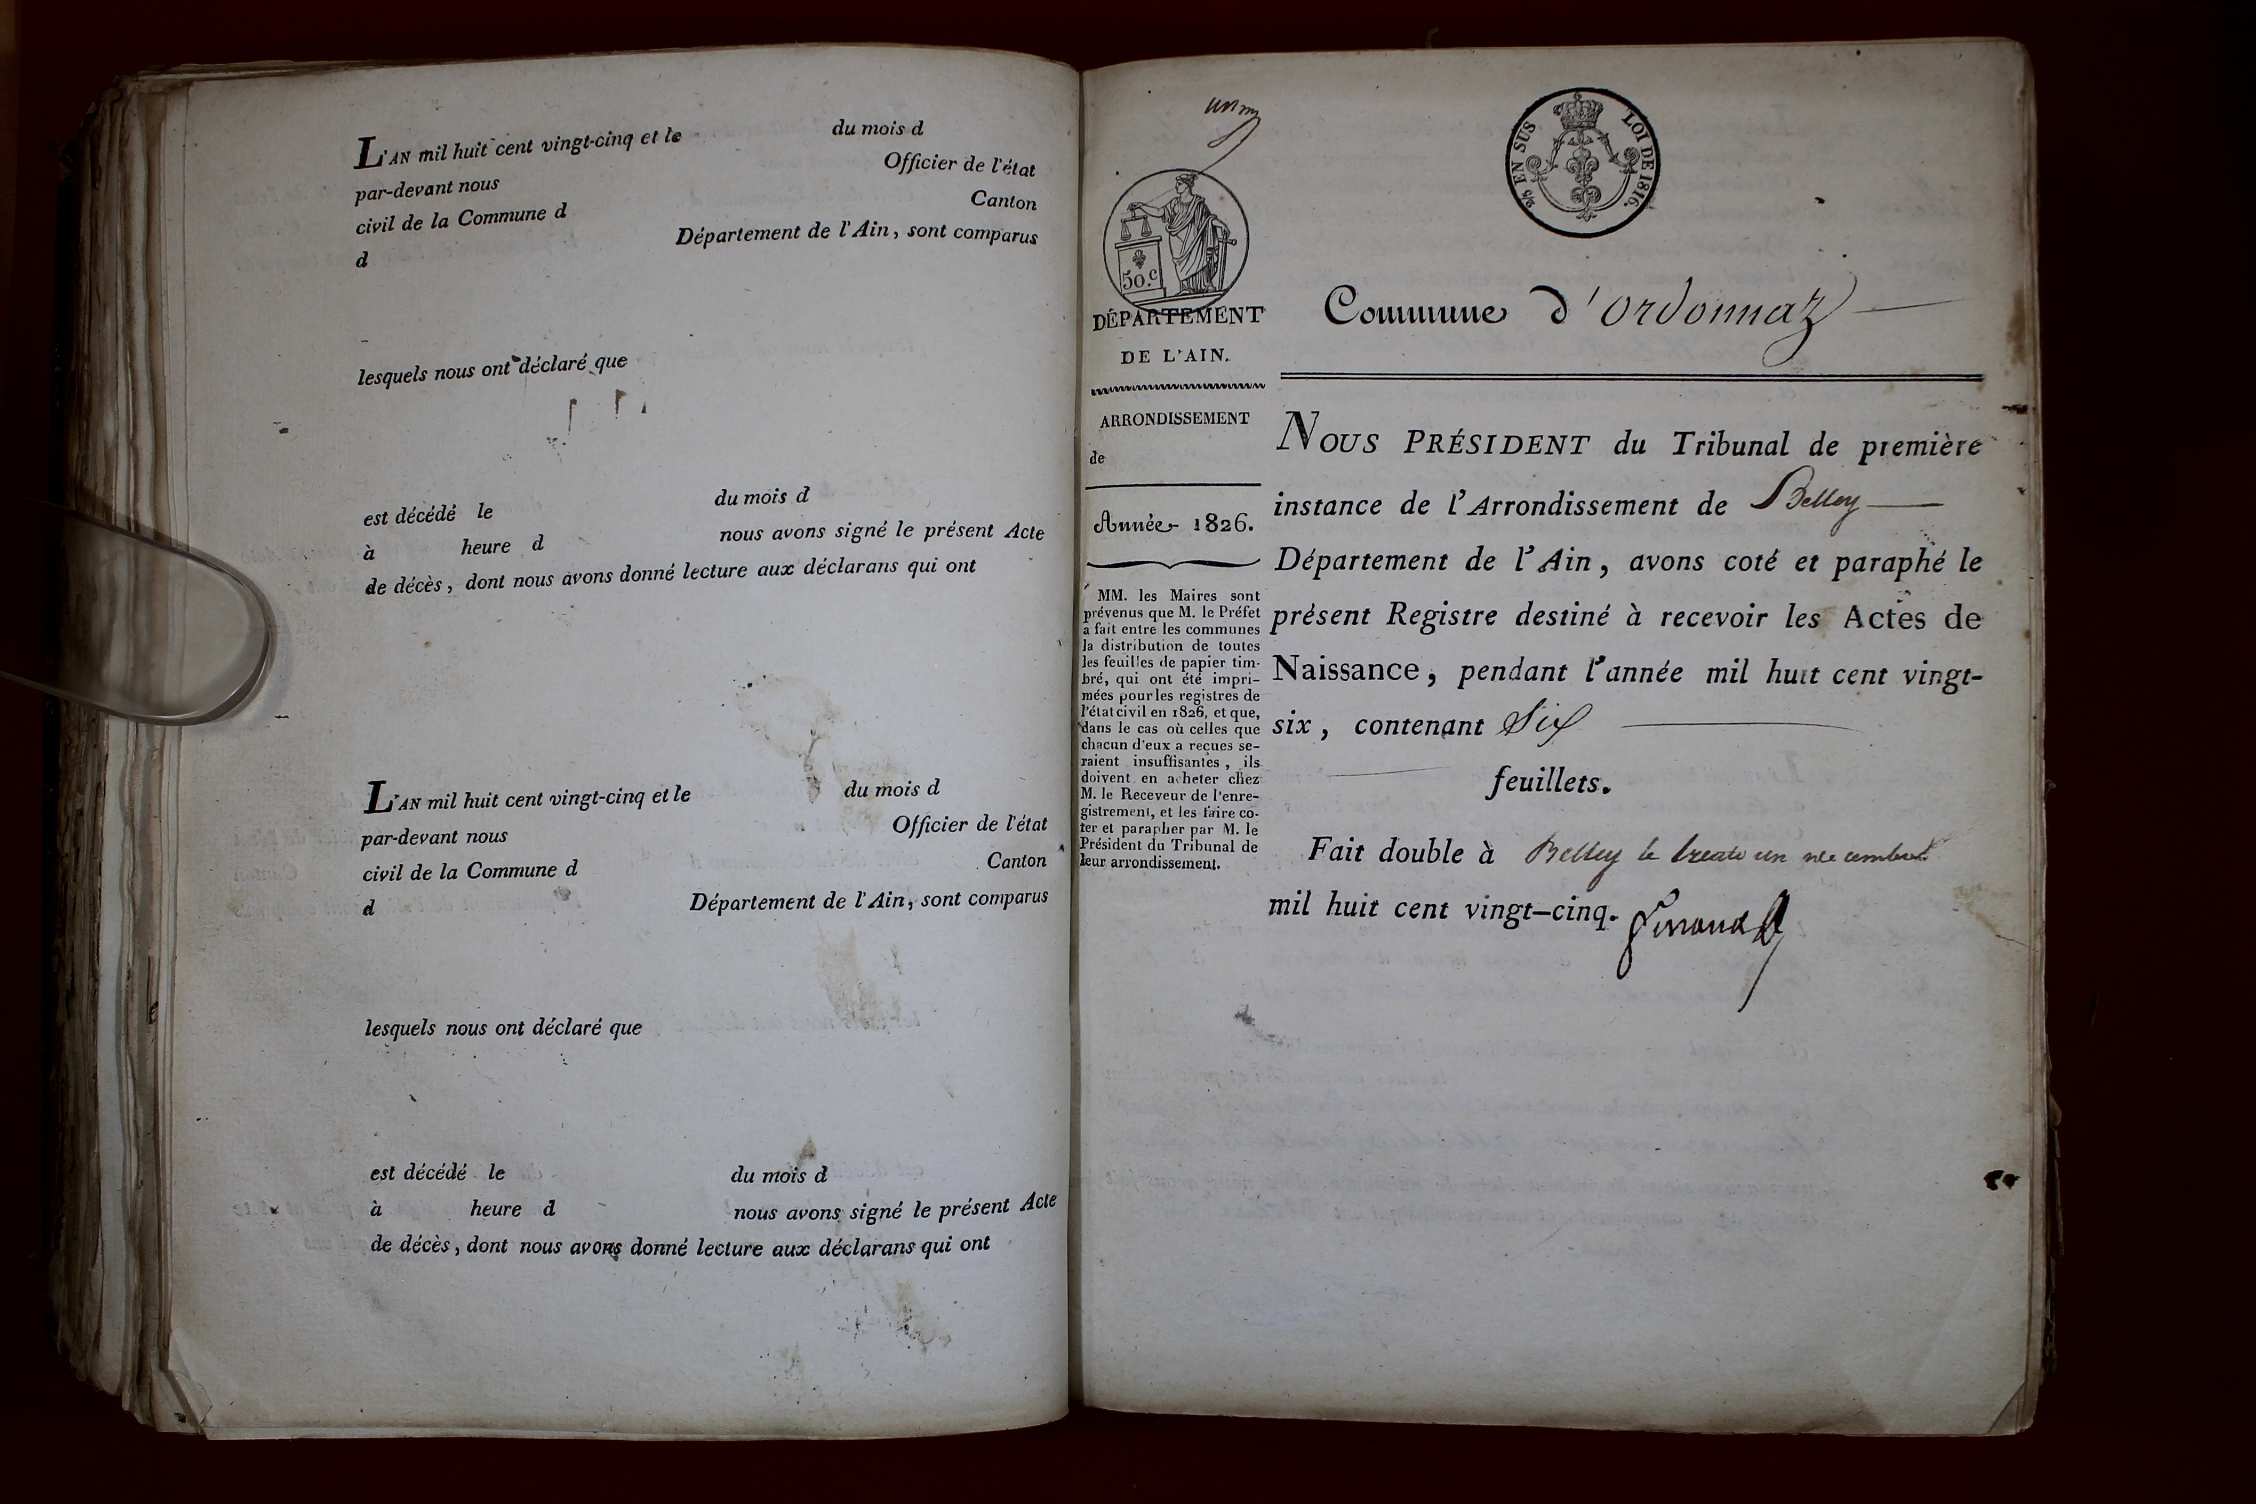 L'AN mil huit cent vingt-cinq et le du mois d
par-devant nous Officier de l'état
civil de la Commune d Canton
d Département de l'Ain, sont comparus
lesquels nous ont déclaré que
est décédé le du mois d
à heure d nous avons signé le présent Acte
de décès, dont nous avons donné lecture aux déclarans qui ont
L'AN mil huit cent vingt-cinq et le du mois d
par-devant nous Officier de l'état
civil de la Commune d Canton
d Département de l'Ain, sont comparus
lesquels nous ont déclaré que
est décédé le du mois d
à heure d nous avons signé le présent Acte
de décès, dont nous avons donné lecture aux déclarans qui ont
50.c
DÉPARTEMENT
DE L'AIN.
ARRONDISSEMENT
de
Année 1826.
MM. les Maires sont
prévenus que M. le Préfet
a fait entre les communes
la distribution de toutes
les feuilles de papier tim-
bré, qui ont été impri-
mées pour les registres de
l'état civil en 1826, et que,
dans le cas où celles que
chacun d'eux a reçues se-
raient insuffisantes, ils
doivent en acheter chez
M. le Receveur de l'enre-
gistrement, et les faire co-
ter et parapher par M. le
Président du Tribunal de
leur arrondissement.
EN SUS LOI DE 1816.
Commune d'ordonnaz
NOUS PRÉSIDENT du Tribunal de première
instance de l'Arrondissement de Belley
Département de l'Ain, avons coté et paraphé le
présent Registre destiné à recevoir les Actes de
Naissance, pendant l'année mil huit cent vingt-
six, contenant Six
feuillets.
Fait double à Belley le trente un
mil huit cent vingt-cinq.